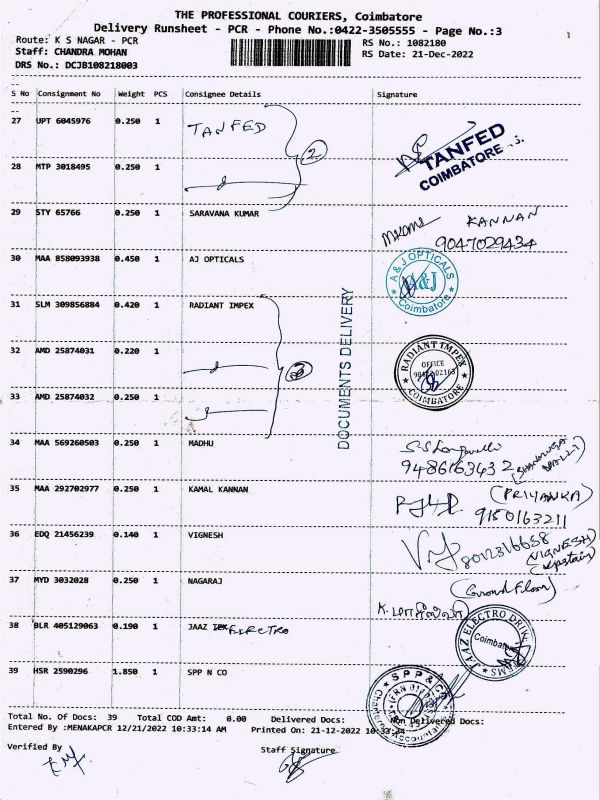 THE PROFESSIONAL COURIERS, Coimbatore
Delivery Runsheet - PCR - Phone No.:0422-3505555 - Page No.:3
Route: K S NAGAR - PCR
RS No.: 1082180
Staff: CHANDRA MOHAN
RS Date: 21-Dec-2022
DRS No.: DCJB108218003
S No Consignment No Weight PCS Consignee Details Signature
27 UPT 6045976 0.250 1 TANFED
2
TANFED
COIMBATORE
28 MTP 3018495 0.250 1
29 STY 65766 0.250 1 SARAVANA KUMAR
KANNAN
9047029434
30 MAA 858093938 0.450 1 AJ OPTICALS
A & J OPTICALS
A&J
Coimbatore
31 SLM 309856884 0.420 1 RADIANT IMPEX
DOCUMENTS DELIVERY
32 AMD 25874031 0.220 1
RADIANT IMPEX
OFFICE
COIMBATORE
33 AMD 25874032 0.250 1
34 MAA 569260503 0.250 1 MADHU
9486163432
35 MAA 292702977 0.250 1 KAMAL KANNAN
(PRIYANKA)
9150163211
36 EDQ 21456239 0.140 1 VIGNESH
8012316658
(VIGNESH)
(Upstair)
37 MYD 3032028 0.250 1 NAGARAJ
(Ground Floor)
38 BLR 405129063 0.190 1 JAAZ ELECTRO
JAAZ ELECTRO DRIVE SYSTEMS
Coimbatore
39 HSR 2590296 1.850 1 SPP N CO
SPP & CO
Chartered Accountants
Total No. Of Docs: 39 Total COD Amt: 0.00 Delivered Docs: Non Delivered Docs:
Entered By :MENAKAPCR 12/21/2022 10:33:14 AM Printed On: 21-12-2022 10:33:24
Verified By
Staff Signature